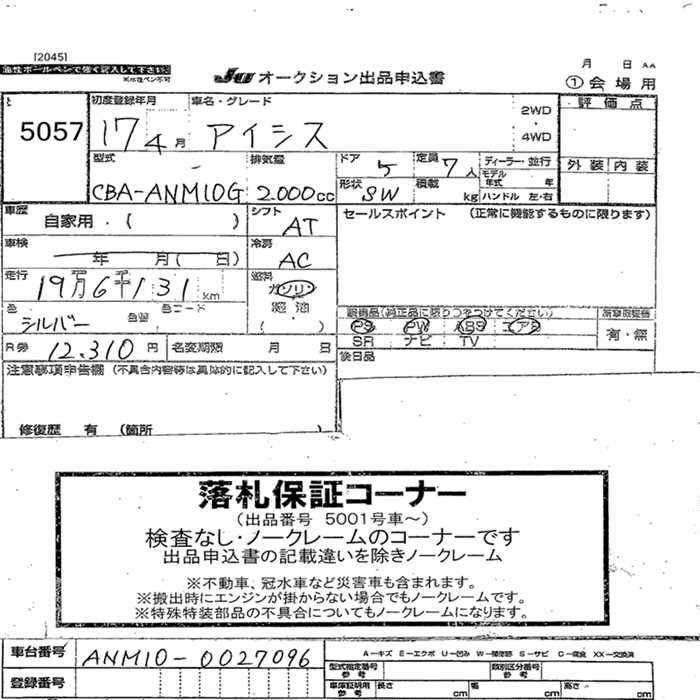 [2045]
油性ボールペンで強く記入して下さい。
JU オークション出品申込書
月 日 AA
① 会場用
5057
初度登録年月 車名・グレード
17 4月 アイシス
2WD
・
4WD
評価点
外装 内装
型式 排気量
CBA-ANM10G 2.000cc
ドア 5 定員 7人
形状 SW 積載 kg
ディーラー・並行
モデル年式 年
ハンドル 左・右
車歴 自家用・( )
シフト AT
セールスポイント (正常に機能するものに限ります)
車検 年 月(日)
冷房 AC
走行 19万6千131km
燃料 ガソリン
軽油
( )
色 シルバー
カラーコード
装備品(純正品に限り○をつけてください)
PS PW ABS エアB
SR ナビ TV
有・無
R券 12.310円 名変期限 月 日
後日品
注意事項申告欄 (不具合内容等は具体的に記入して下さい)
修復歴 有 (箇所 )
落札保証コーナー
(出品番号 5001号車～)
検査なし・ノークレームのコーナーです
出品申込書の記載違いを除きノークレーム
※不動車、冠水車など災害車も含まれます。
※搬出時にエンジンが掛からない場合でもノークレームです。
※特殊特装部品の不具合についてもノークレームになります。
車台番号 ANM10-0027096
登録番号
A－キズ E－エクボ U－凹み W－補修跡 S－サビ C－腐食 XX－交換済
型式指定番号 参考
類別区分番号 参考
車庫証明用 参考 長さ cm 幅 cm 高さ cm